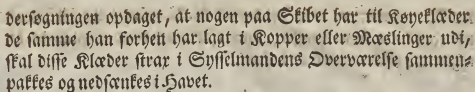 dersøgningen opdaget, at nogen paa Skibet har til Køyeklæder
de samme han forhen har lagt i Kopper eller Mæslinger udi,
skal disse Klæder strax i Sysselmandens Overværelse sammen-
pakkes og nedsænkes i Havet.